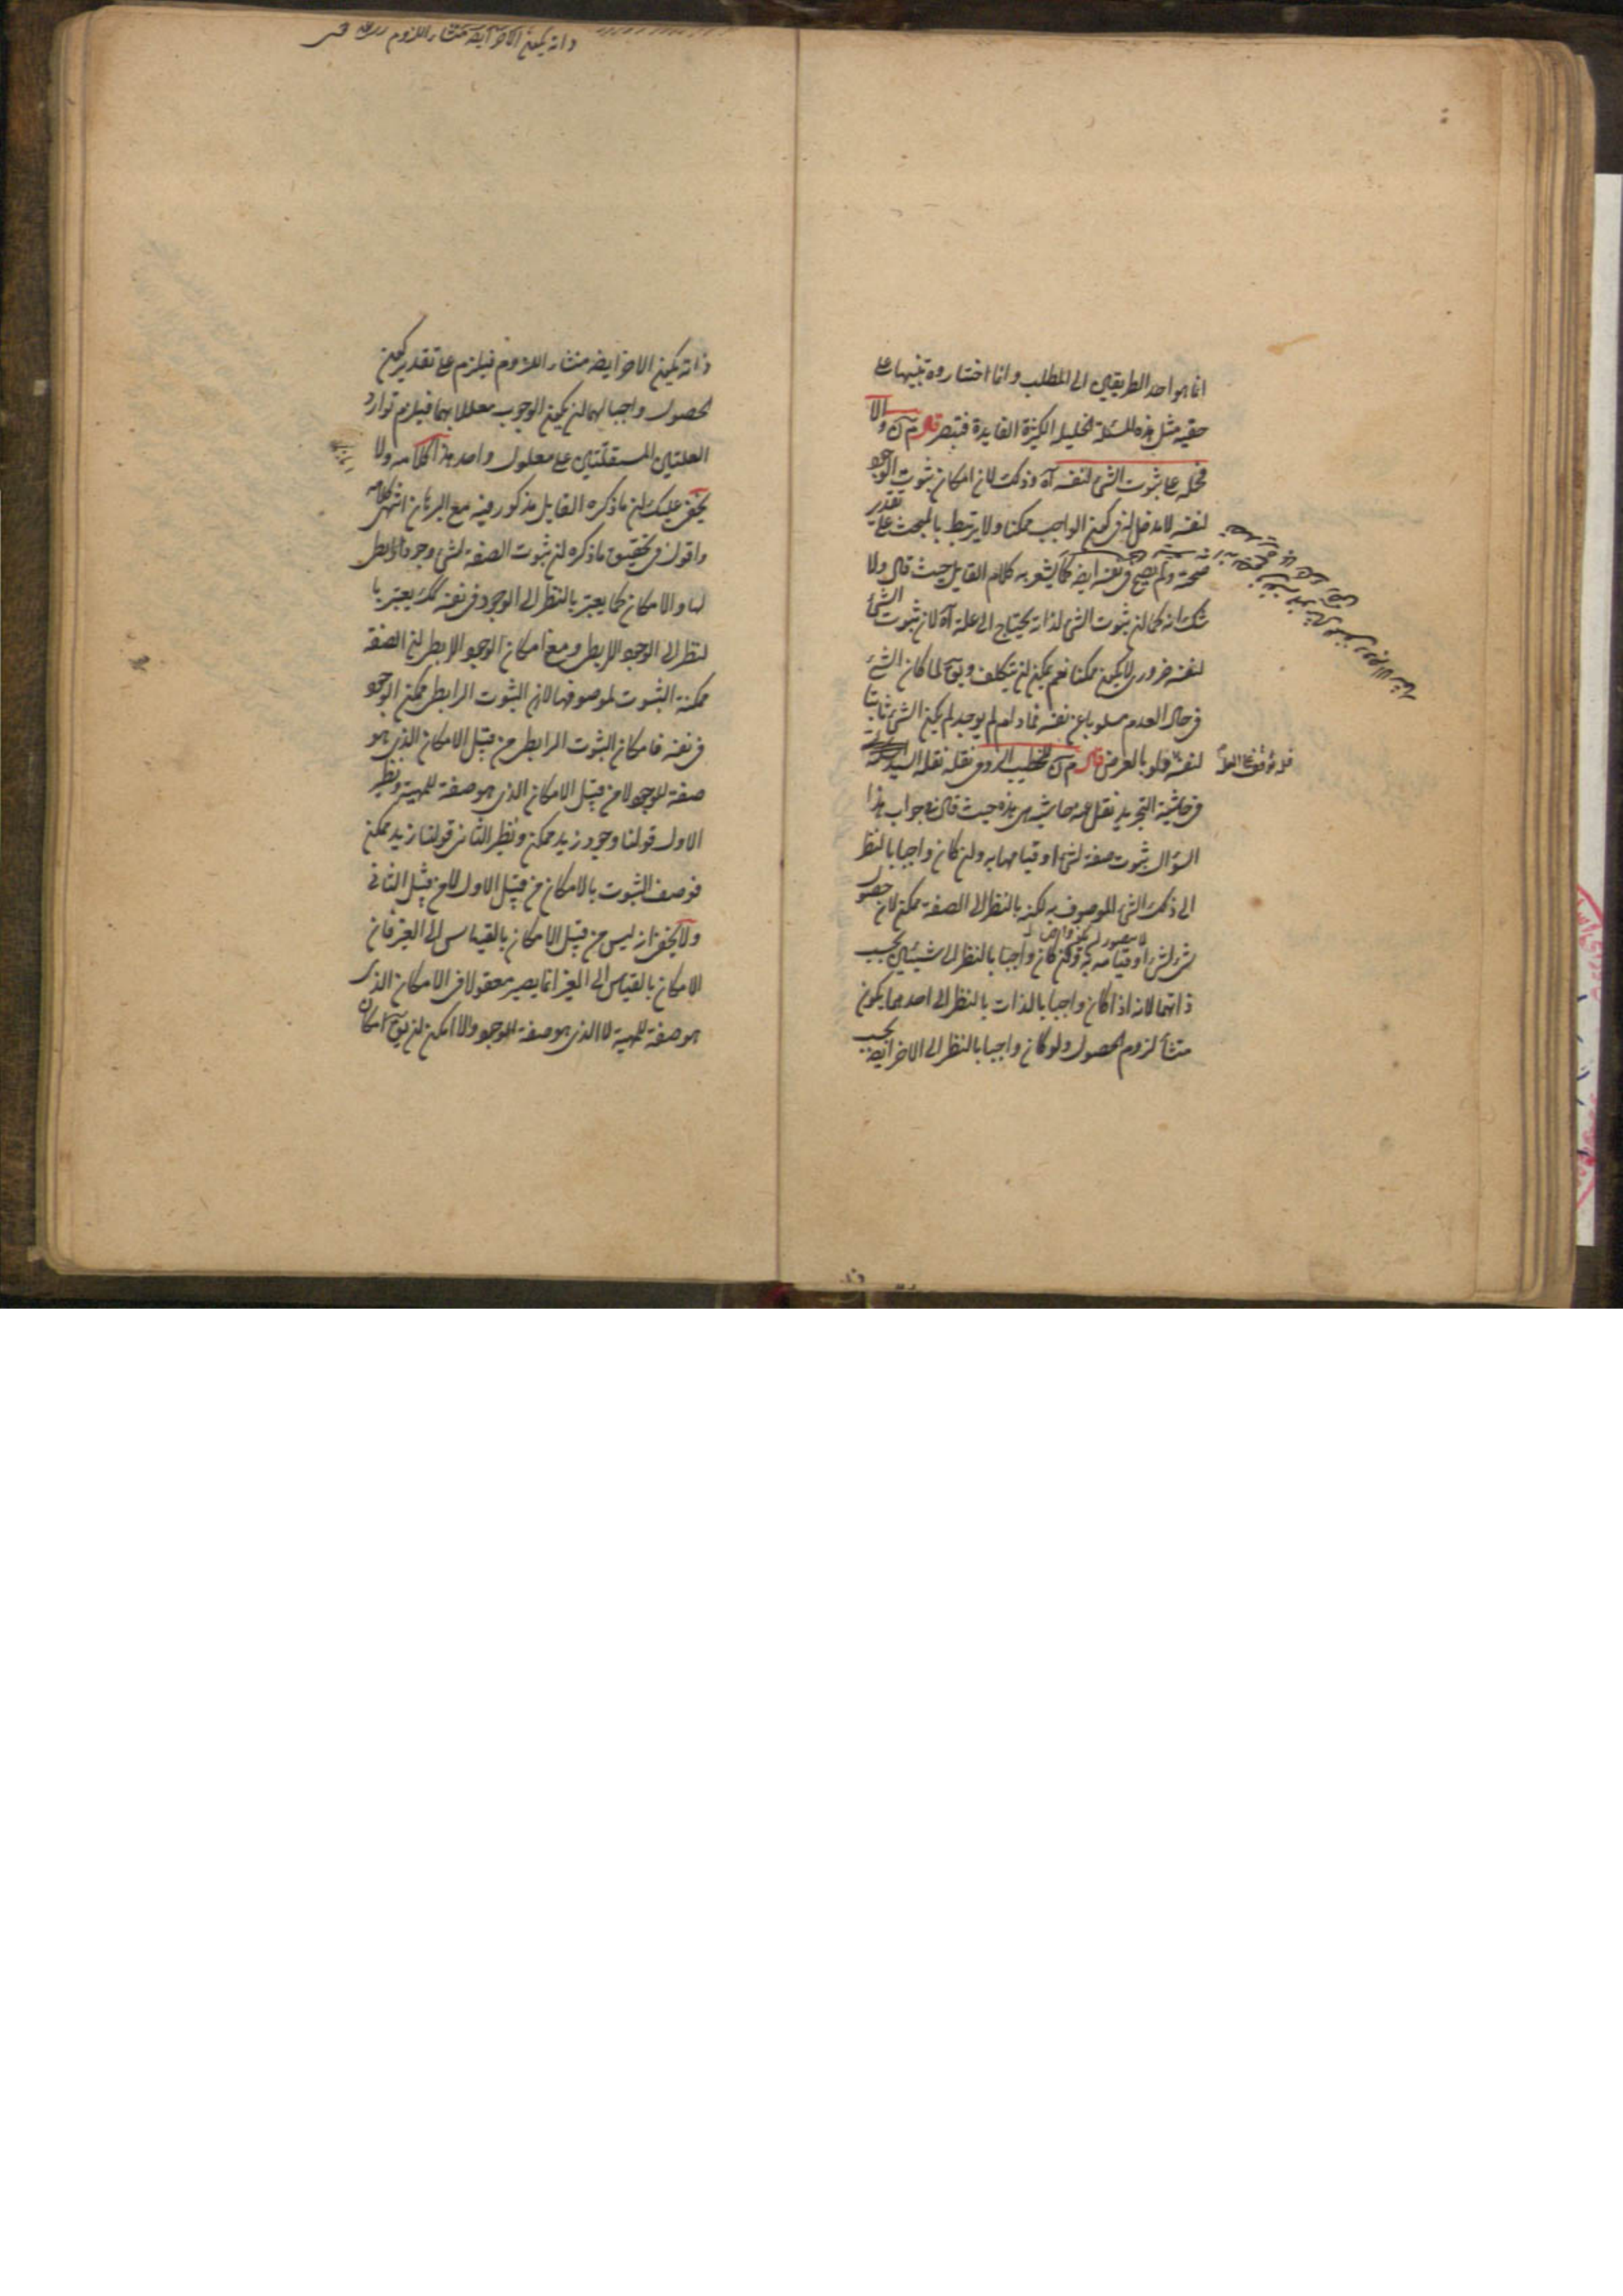 انما هو احد الطريقين الى المطلب وانما اختاروه تنبيها على
حقية مثل هذه المسئلة الجليلة الكثيرة الفايدة فتبصر قال م ن والا
فحمله على ثبوت الشئ لنفسه آه وذلك لان امكان ثبوت الوجود
لنفسه لا مدخل له فى كون الواجب ممكنا ولا يرتبط بالمبحث على تقدير
صحته ولم يصح فى نفسه ايضا كما يشعر به كلام القايل حيث قال ولا
شك انه كما ان ثبوت الشئ لذاته يحتاج الى علة آه لان ثبوت الشئ
لنفسه ضرورى لا يكون ممكنا نعم يمكن ان يتكلف ويق لما كان الشئ
فى حال العدم مسلوبا عن نفسه فما دام لم يوجد لم يكن الشئ ثابتا
لنفسه ولو بالعرض قال م ن الخطيب الرومى نقله نقله السيد
فى حاشية التجريد نقل عنه حاشية هى هذه حيث قال فى جواب هذا
السؤال ثبوت صفة لشئ او قيامها به وان كان واجبا بالنظر
الى ذلك الشئ الموصوف به لكنه بالنظر الى الصفة ممكن لان حصول
شئ لشئ او قيامه به وان كان واجبا بالنظر الى شيئين بحسب
ذاتهما لانه اذا كان واجبا بالذات بالنظر الى احدهما يكون
منشأ لزوم الحصول ولو كان واجبا بالنظر الى الاخر ايضا بحسب
ذاته يكون الاخر ايضا منشاء اللزوم فيلزم على تقدير كون
الحصول واجبا لهما ان يكون الوجوب معللا بهما فيلزم توارد
العلتين المستقلتين على معلول واحد هذا كلامه ولا
يخفى عليك ان ما ذكره القايل مذكور فيه مع البرهان انتهى كلامه
واقول فى تحقيق ما ذكره ان ثبوت الصفة لشئ وجود رابطى
لها والامكان كما يعتبر بالنظر الى الوجود فى نفسه كذلك يعتبر با
لنظر الى الوجود الرابطى ومع امكان الوجود الرابطى ان الصفة
ممكنة الثبوت لموصوفها لا ان الثبوت الرابطى ممكن الوجود
فى نفسه فامكان الثبوت الرابطى من قبيل الامكان الذى هو
صفة للوجود لا من قبيل الامكان الذى هو صفة للمهية ونظير
الاول قولنا وجود زيد ممكن ونظير الثانى قولنا زيد ممكن
فوصف الثبوت بالامكان من قبيل الاول لا من قبيل الثانى
ولا يخفى انه ليس من قبيل الامكان بالقياس الى الغير فان
الامكان بالقياس الى الغير انما يصير معقولا فى الامكان الذى
هو صفة للمهية لا الذى هو صفة للوجود والا امكن ان يق امكان